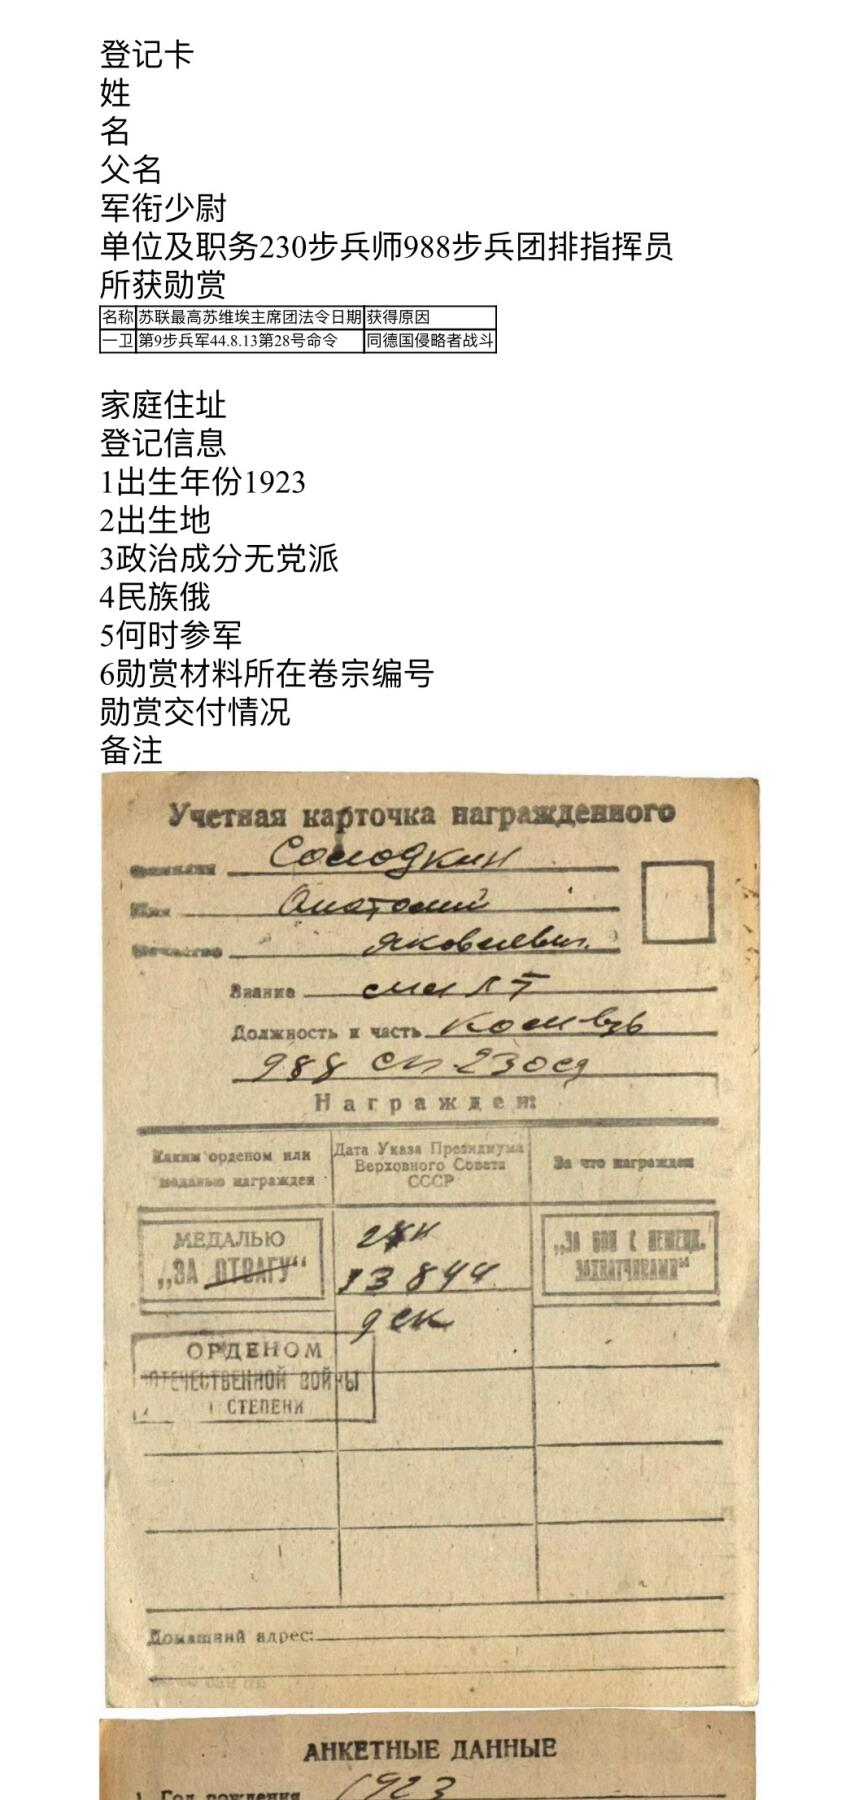 登记卡
姓
名
父名
军衔少尉
单位及职务230步兵师988步兵团排指挥员
所获勋赏
名称 苏联最高苏维埃主席团法令日期 获得原因
一卫 第9步兵军44.8.13第28号命令 同德国侵略者战斗
家庭住址
登记信息
1出生年份1923
2出生地
3政治成分无党派
4民族俄
5何时参军
6勋赏材料所在卷宗编号
勋赏交付情况
备注
Учетная карточка награжденного
Фамилия Солодкин
Имя Анатолий
Отчество Яковлевич
Звание мл лт
Должность и часть Ком взв
988 сп 230сд
Награжден:
Каким орденом или медалью награжден
Дата Указа Президиума Верховного Совета СССР
За что награжден
МЕДАЛЬЮ
„ЗА ОТВАГУ“
28н
13 8 44
9 ск
„ЗА БОИ С НЕМЕЦК.
ЗАХВАТЧИКАМИ“
ОРДЕНОМ
ОТЕЧЕСТВЕННОЙ ВОЙНЫ
I СТЕПЕНИ
Домашний адрес:
АНКЕТНЫЕ ДАННЫЕ
1. Год рождения 1923